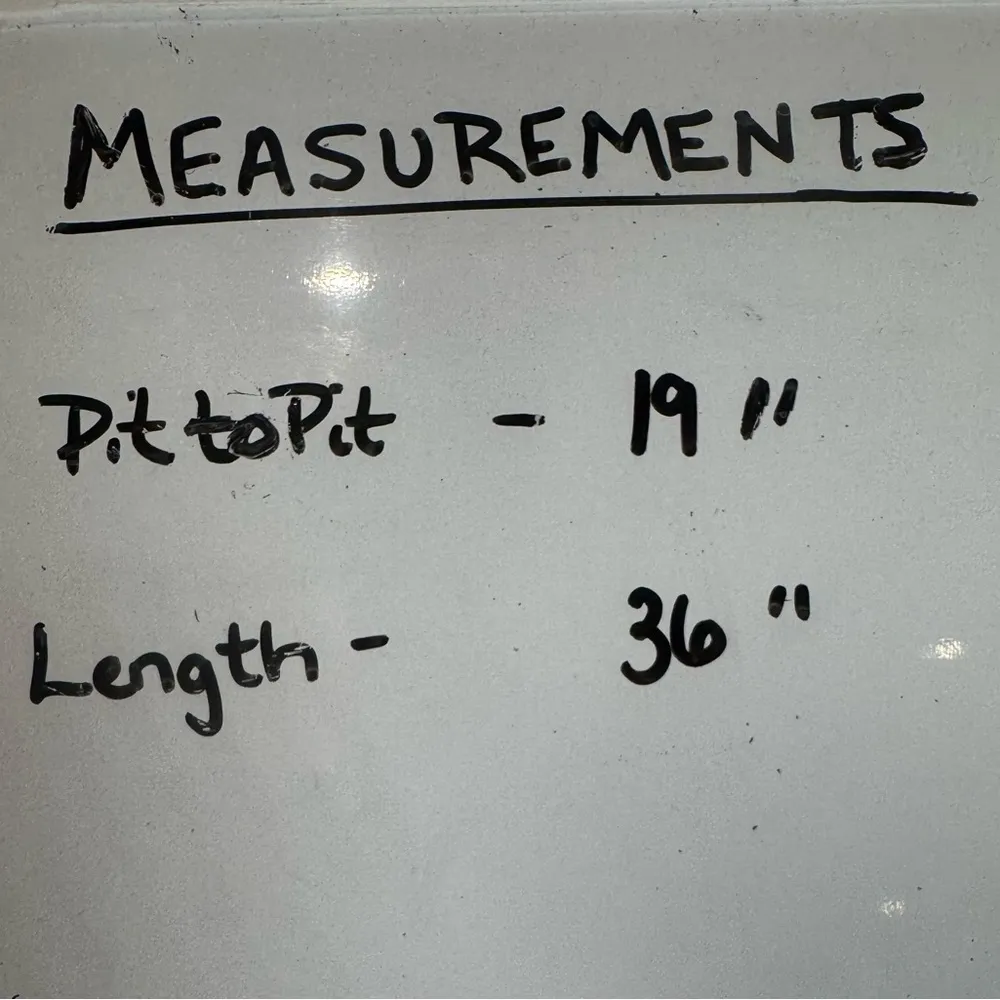 MEASUREMENTS
Pit to Pit - 19 "
Length - 36 "